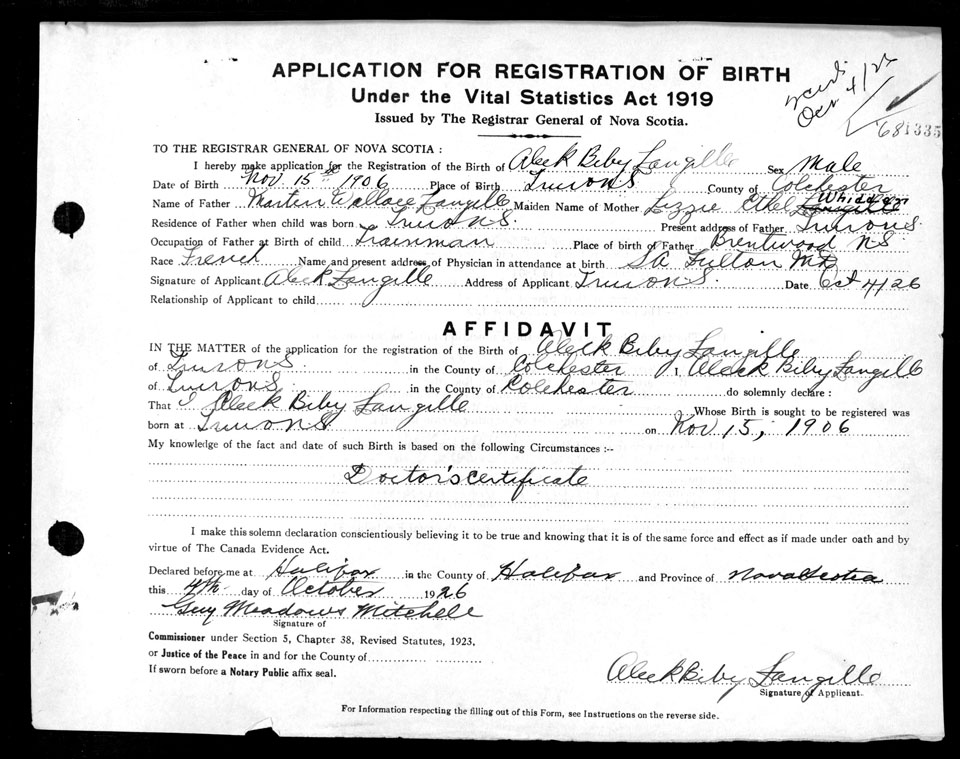 APPLICATION FOR REGISTRATION OF BIRTH
Under the Vital Statistics Act 1919
Issued by The Registrar General of Nova Scotia.
Oct 4/26
681335
TO THE REGISTRAR GENERAL OF NOVA SCOTIA :
I hereby make application for the Registration of the Birth of Aleck Biby Langille Sex Male
Date of Birth Nov 15th 1906 Place of Birth Truro NS County of Colchester
Name of Father Martin Wallace Langille Maiden Name of Mother Lizzie Ethel Langille Whidden
Residence of Father when child was born Truro NS. Present address of Father Truro NS
Occupation of Father at Birth of child Trainman Place of birth of Father Brentwood NS
Race French Name and present address of Physician in attendance at birth SA Fulton MD
Signature of Applicant Aleck Langille Address of Applicant Truro NS. Date Oct 4/26
Relationship of Applicant to child
AFFIDAVIT
IN THE MATTER of the application for the registration of the Birth of Aleck Biby Langille
of Truro NS in the County of Colchester I, Aleck Biby Langille
of Truro NS in the County of Colchester do solemnly declare :
That I Aleck Biby Langille Whose Birth is sought to be registered was
born at Truro NS on Nov 15, 1906
My knowledge of the fact and date of such Birth is based on the following Circumstances :--
Doctor's certificate
I make this solemn declaration conscientiously believing it to be true and knowing that it is of the same force and effect as if made under oath and by
virtue of The Canada Evidence Act.
Declared before me at Halifax in the County of Halifax and Province of Nova Scotia
this 4th day of October 1926
Guy Meadows Mitchell
Signature of
Commissioner under Section 5, Chapter 38, Revised Statutes, 1923,
or Justice of the Peace in and for the County of
If sworn before a Notary Public affix seal.
Aleck Biby Langille
Signature of Applicant.
For Information respecting the filling out of this Form, see Instructions on the reverse side.